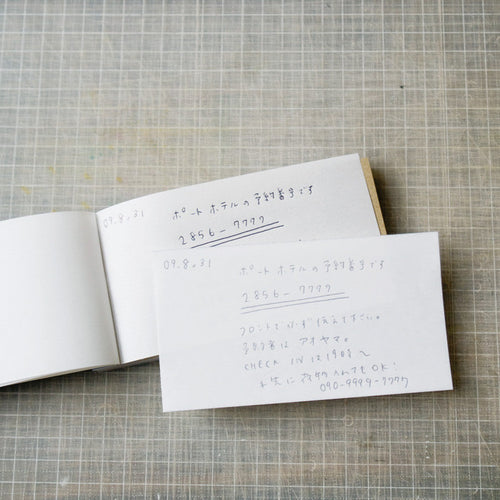 09.8.31
ポートホテルの予約番号です
2856-7777
09.8.31
ポートホテルの予約番号です
2856-7777
フロントで必ず伝えて下さい。
予約者は アオヤマ。
CHECK INは19時〜
先に 入れてもOK!
090-9999-7777